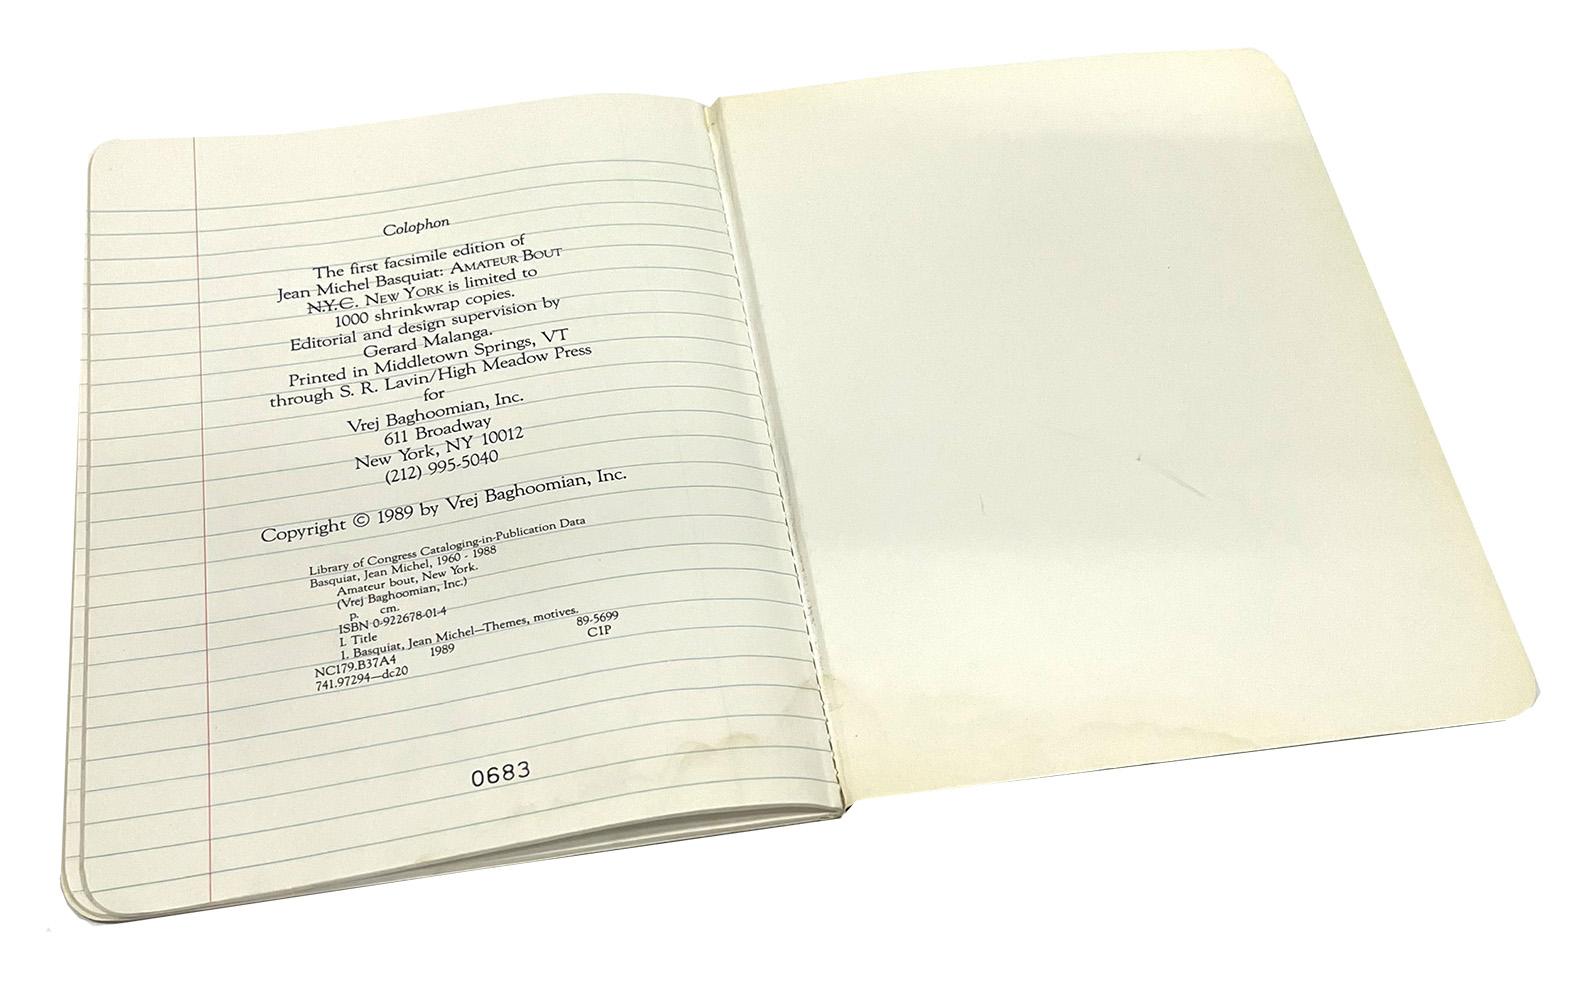 Colophon
The first facsimile edition of
Jean Michel Basquiat: AMATEUR BOUT
N.Y.C. NEW YORK is limited to
1000 shrinkwrap copies.
Editorial and design supervision by
Gerard Malanga.
Printed in Middletown Springs, VT
through S. R. Lavin/High Meadow Press
for
Vrej Baghoomian, Inc.
611 Broadway
New York, NY 10012
(212) 995-5040
Copyright © 1989 by Vrej Baghoomian, Inc.
Library of Congress Cataloging-in-Publication Data
Basquiat, Jean Michel, 1960 - 1988
Amateur bout, New York.
(Vrej Baghoomian, Inc.)
p. cm.
ISBN 0-922678-01-4
I. Title
1. Basquiat, Jean Michel—Themes, motives.
NC179.B37A4 1989 89-5699
741.97294—dc20 CIP
0683